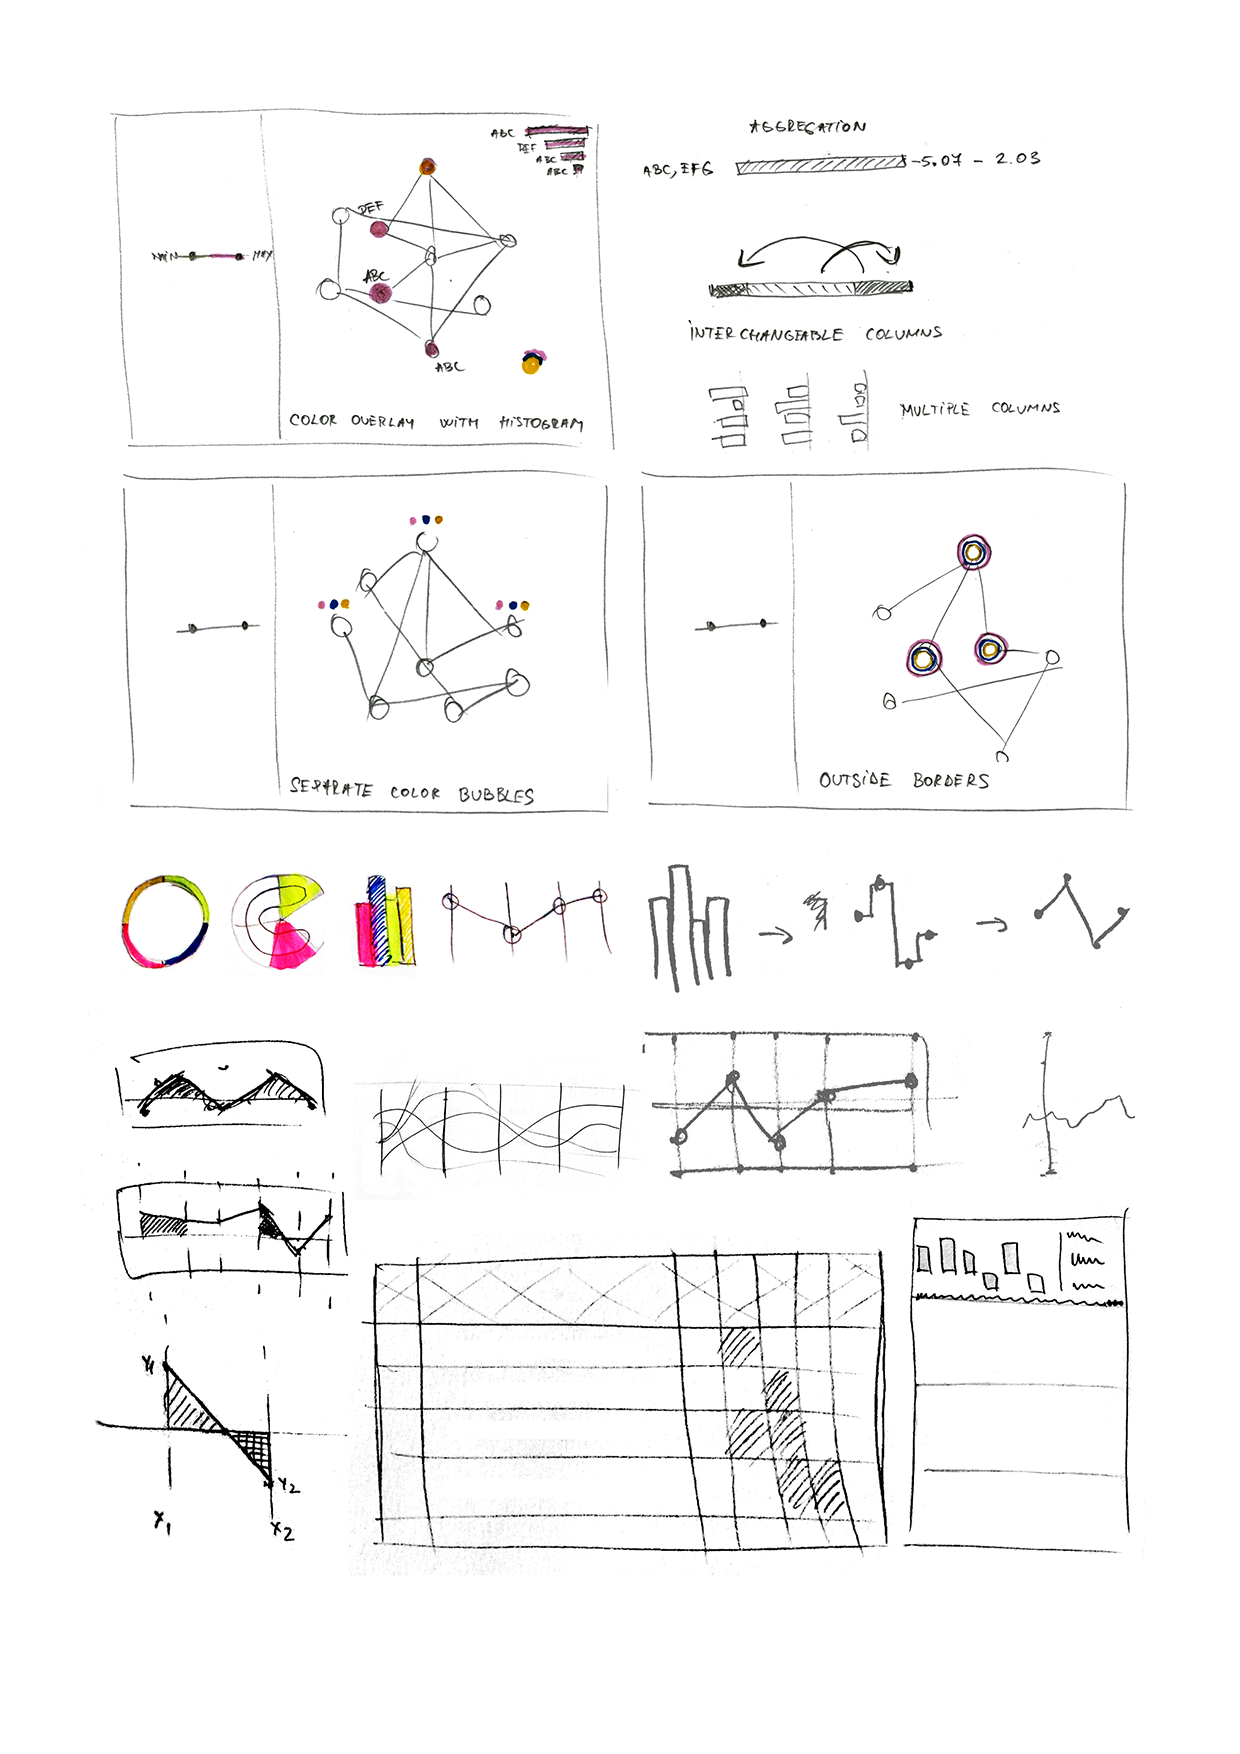 ABC
DEF
ABC
ABC
DEF
MIN
MAX
ABC
ABC
COLOR OVERLAY WITH HISTOGRAM
AGGREGATION
ABC, EFG
-5.07 - 2.03
INTERCHANGEABLE COLUMNS
MULTIPLE COLUMNS
SEPARATE COLOR BUBBLES
OUTSIDE BORDERS
Y1
Y2
X1
X2